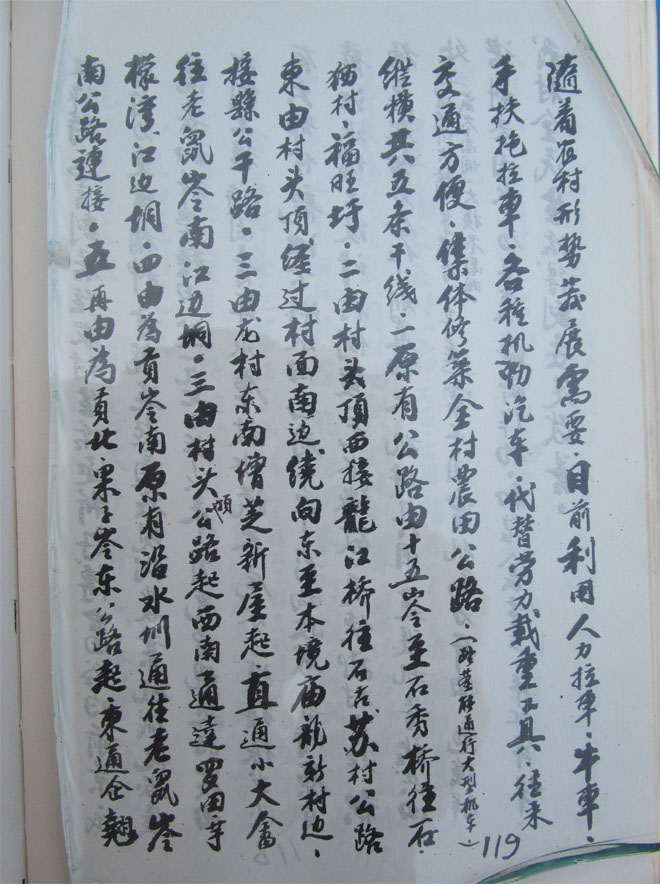 随着农村形势发展需要·目前利用人力拉車·牛車·
手扶拖拉車·各种机动汽车·代替劳力载重工具·往来
交通方便·集体修築全村農田公路·(路基能通行大型机车)
纵横共五条干线·一原有公路由十五岺至石秀桥往石·
猫村·福旺圩·二由村头頂西接龍江桥往石古苏村公路
東由村头頂经过村面南边绕向东至本境庙龍新村边·
接縣公干路·三由龙村东南增芝新屋起·直通小大畲
往老鼠岺南江边垌·三由村头頂公路起西南通達罗田寺
樣湾江边垌·四由為貢岺南原有沿水圳通往老鼠岺
南公路連接·五再由為貢北·果子岺东公路起東通企翹
119